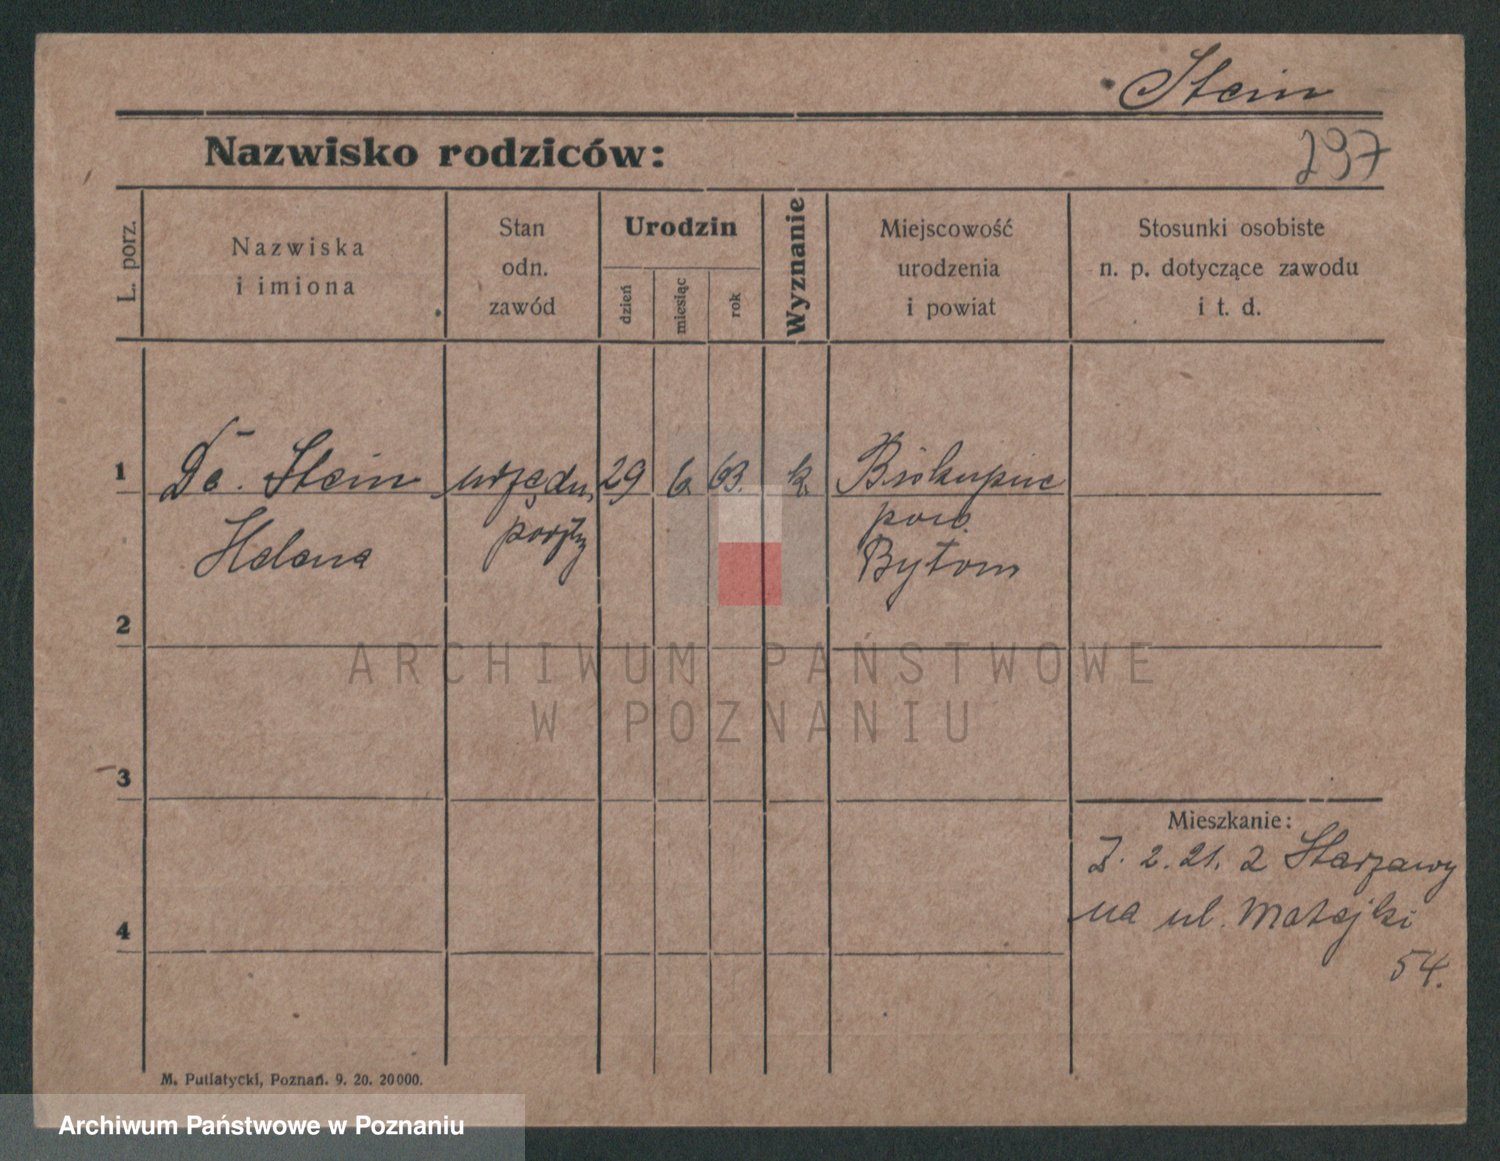 Stein
Nazwisko rodziców:
297
L. porz.
Nazwiska
i imiona
Stan
odn.
zawód
Urodzin
dzień
miesiąc
rok
Wyznanie
Miejscowość
urodzenia
i powiat
Stosunki osobiste
n. p. dotyczące zawodu
i t. d.
1
Stein
Helena
urzędn.
29
6
63.
k.
Biskupice
pow.
Bytom
2
3
4
ARCHIWUM PAŃSTWOWE
W POZNANIU
Mieszkanie:
2. 21. z Starzawy
na ul. Matejki
54.
M. Putiatycki, Poznań. 9. 20. 20000.
Archiwum Państwowe w Poznaniu